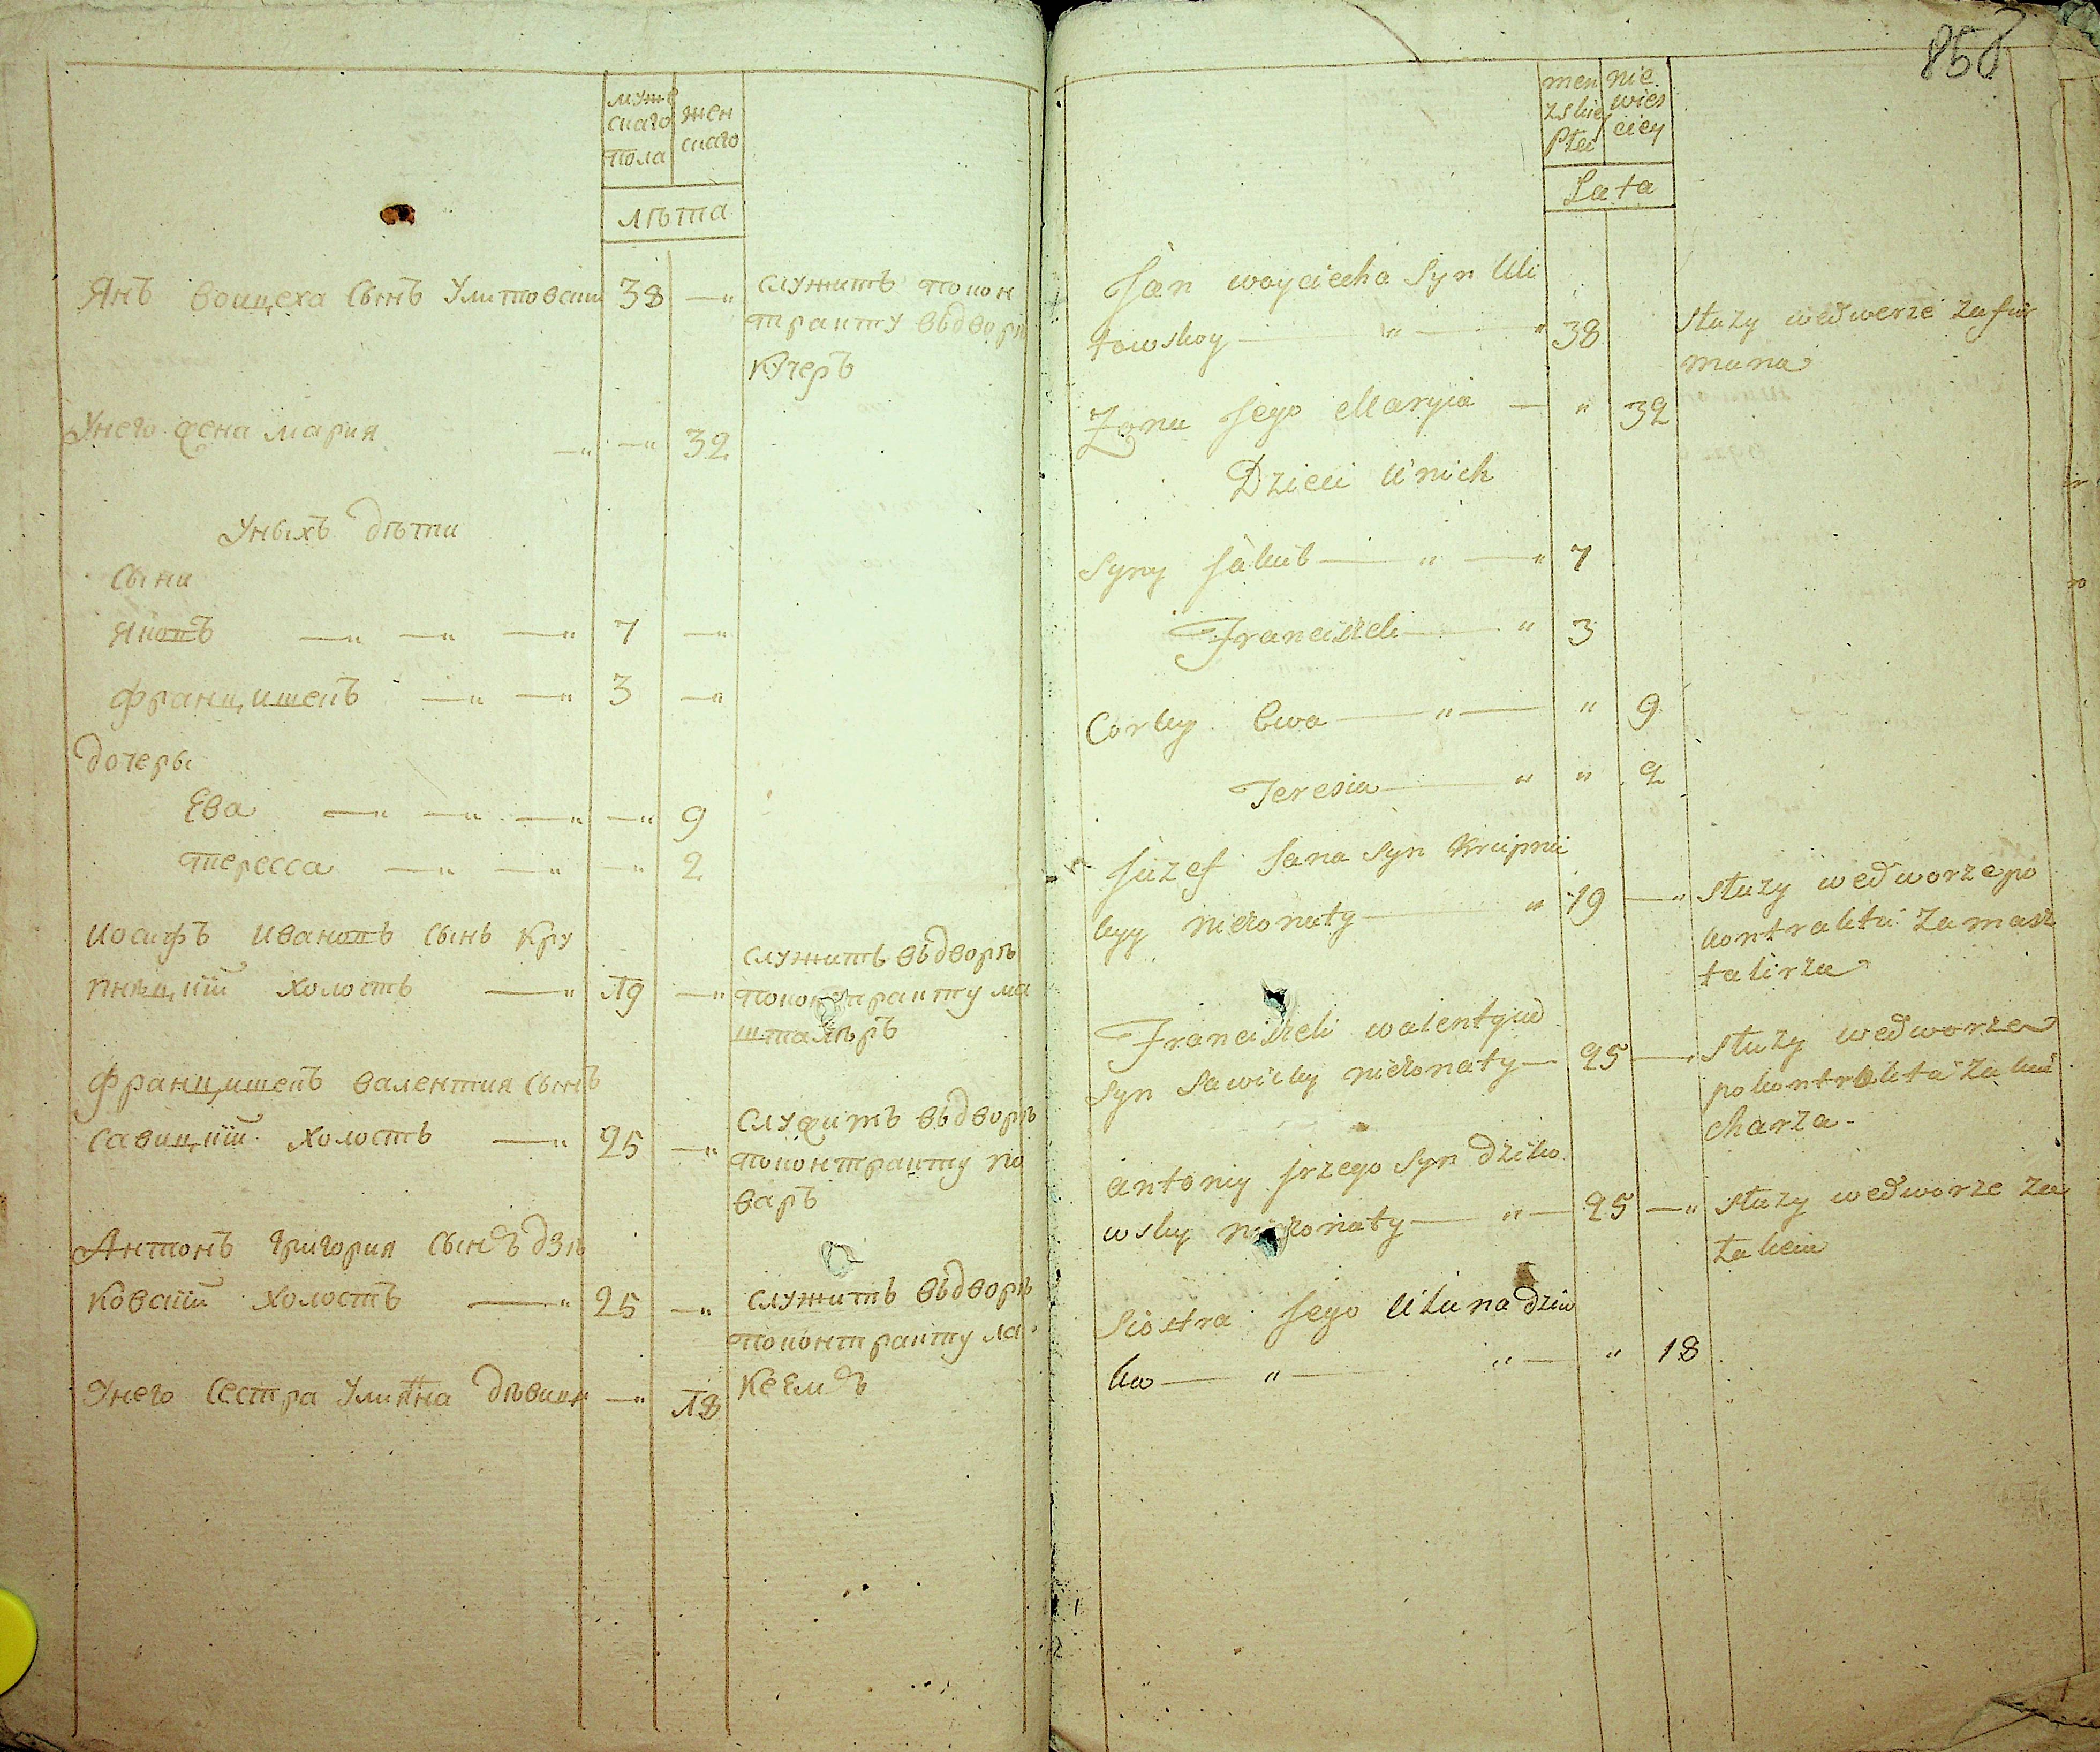 муже
скаго
пола
жен
скаго
лѣта
Янъ воицеха сынъ Улитовски 38 —"
служитъ покон
тракту вьдворѣ
кучеръ
Унего жена мария —" —" 32
Уныхъ дѣти
сыни
Якопъ —" —" —" 7 —"
францишекъ —" —" 3 —"
дочеры
Ева —" —" —" —" 9
тересса —" —" —" 2
иосифъ иванопъ сынъ кру
пнѣцкій холостъ —" 19 —"
служитъ вьдворѣ
поконтракту ма
шталѣръ
францишекъ валентия сынъ
савицкій холостъ —" 25 —"
служитъ вьдворѣ
поконтракту по
варъ
Антонъ григория сынъ дзѣ
ковскій холостъ —" 25 —"
служитъ вьдворѣ
поконтракту ла
кеемъ
Унего сестра улияна дѣвика —" 18
858
men
zskiey
Płci
nie
wies
ciey
Lata
Jan woyciecha Syn Uli
towskoy —"—" 38
służy wedwerze zafur
mana
Zona Jego Maryia — " 32
Dzieci Unich
Syny Jakub —"—" 7
Franciszek —" 3
Corky Ewa —"— " 9
Teresia —" " 2
Juzef Jana Syn Krupnic
kyy nieżonaty —" 19 —"
służy wedworze po
kontraktu za masz
talirza
Franciszek walentyia
Syn Sawicky nieżonaty — 25 —"
służy wedworze
pokontraktu za ku
charza -
antoniy Jrzego Syn dziko
wsky nieżonaty —"— 25 —"
służy wedworze za
lakeia
Siostra Jego Uliana dziw
ka —"— "— " 18